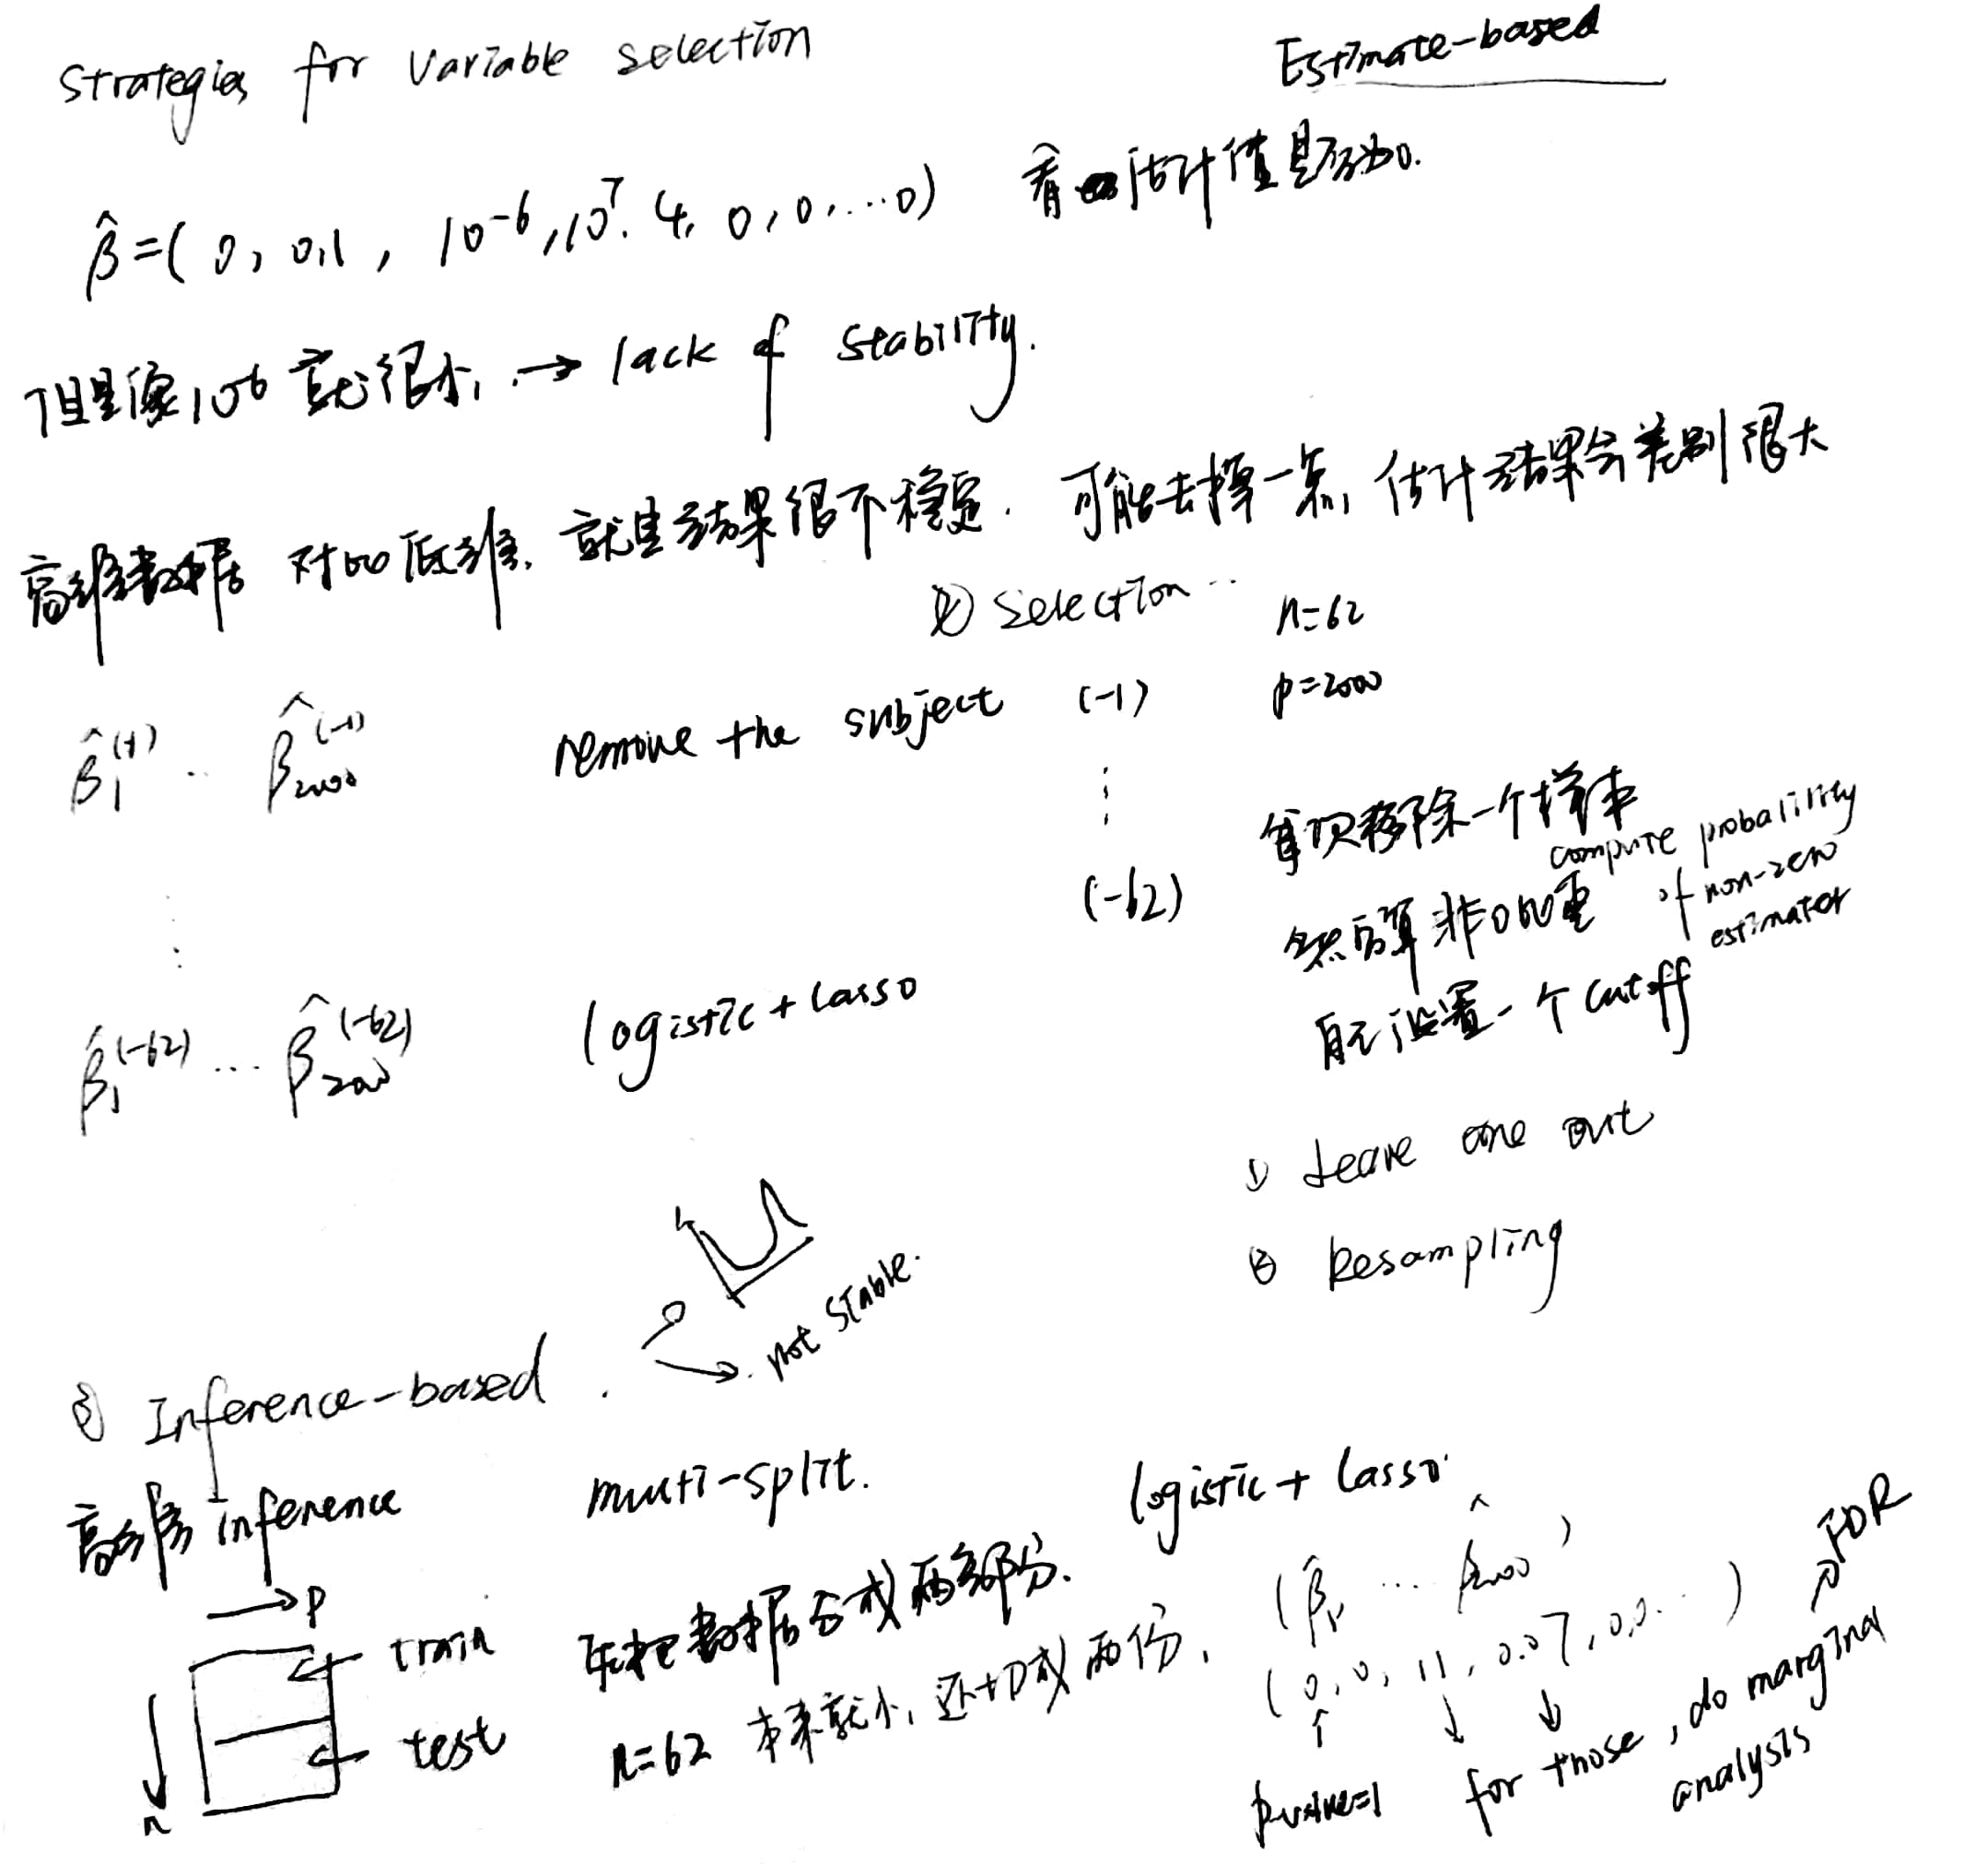 Strategies for Variable selection
Estimate-based
β̂=( 0, 0.1, 10⁻⁶, 10⁷. 4, 0, 0, ...0) 看 估计值是否为0.
但是像10⁻⁶ 就很小, → lack of stability.
高维数据 对比低维, 就是结果很不稳定. 可能去掉一点, 估计结果会差别很大
② Selection ..
n=62
p=2000
β̂₁⁽⁻¹⁾ .. β̂₂₀₀₀⁽⁻¹⁾ remove the subject (-1)
⋮
每次移除一个样本
(-62)
然后算非0的 compute probality of non-zero estimator
自己设置一个cutoff
β̂₁⁽⁻⁶²⁾ ... β̂₂₀₀₀⁽⁻⁶²⁾ logistic + lasso
① Leave one out
② Resampling
③ Inference-based .
→ not stable.
高维 inference multi-split. logistic + lasso.
→ p
train 先把数据分成两部分. (β̂₁, ... β̂₂₀₀₀)
test n=62 本来就小, 还切成两份, ( 0, 0, 11, 0.07, 0,0... ) FDR
n
pvalue=1 for those, do marginal analysis